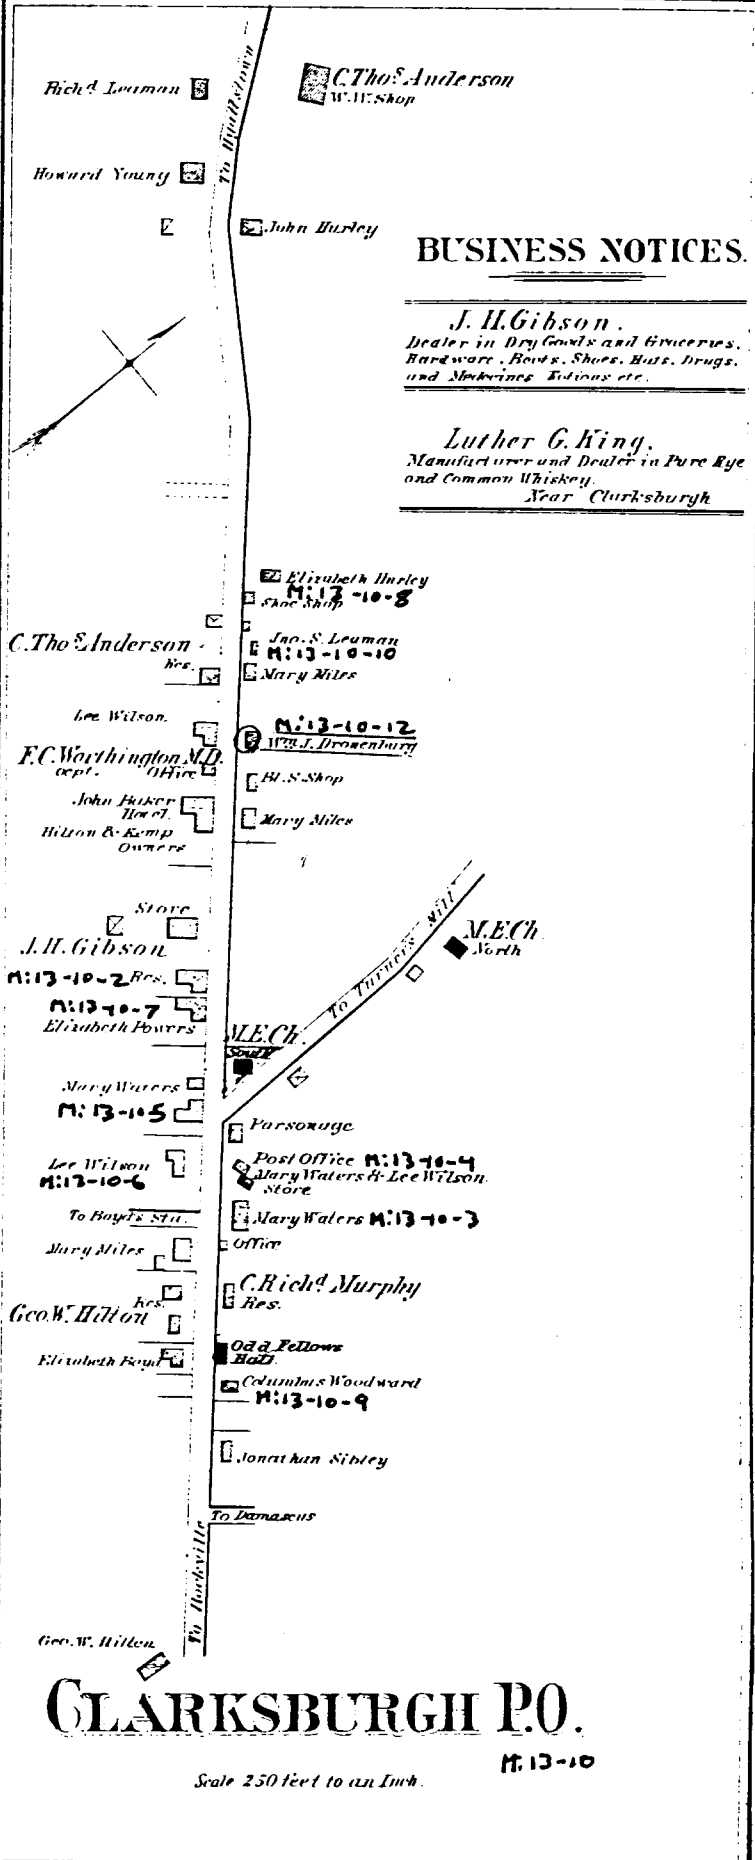 To Hyattstown
Rich^d. Leaman
C. Tho^s. Anderson
W.W. Shop
Howard Young
John Hurley
BUSINESS NOTICES.
J. H. Gibson.
Dealer in Dry Goods and Groceries,
Hardware, Boots, Shoes, Hats, Drugs,
and Medecines Notions etc.
Luther G. King.
Manufacturer and Dealer in Pure Rye
and Common Whiskey.
Near Clarksburgh
Elizabeth Hurley
M:13-10-8
Shoe Shop
C. Tho^s. Anderson
Res.
Jno. S. Leaman
M:13-10-10
Mary Miles
Lee Wilson.
M:13-10-12
Wm. J. Dronenburg
F. C. Worthington M.D.
Office
Bl. S. Shop
John Baker
Hotel.
Hilton & Kemp
Owners
Mary Miles
Store
J. H. Gibson
M:13-10-2 Res.
M:13-10-7
Elizabeth Powers
To Turners Mill
M.E. Ch.
North
M.E. Ch.
South
Mary Waters
M:13-10-5
Parsonage
Lee Wilson
M:13-10-6
Post Office M:13-10-4
Mary Waters & Lee Wilson.
Store
To Boyds Sta.
Mary Waters M:13-10-3
Mary Miles
Office
Res.
Geo. W. Hilton
C. Rich^d. Murphy
Res.
Elizabeth Boyd
Odd Fellows
Hall.
Columbus Woodward
M:13-10-9
Jonathan Sibley
To Damascus
To Rockville
Geo. W. Hilton
CLARKSBURGH P.O.
M:13-10
Scale 250 feet to an Inch.